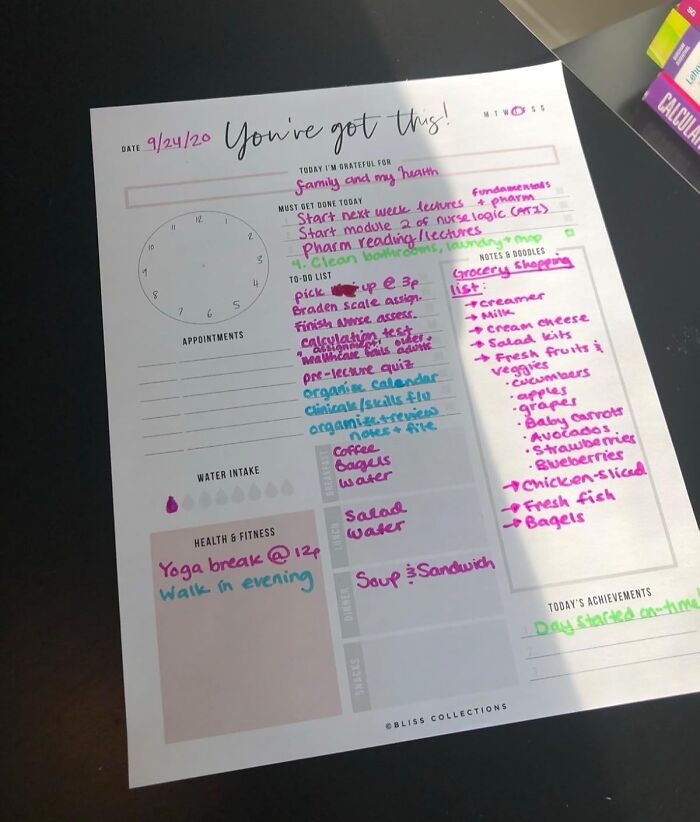 DATE 9/24/20
You've got this!
M T W T S S
TODAY I'M GRATEFUL FOR
family and my health
MUST GET DONE TODAY
1 Start next week lectures fundamentals + pharm
2 Start module 2 of nurselogic (ATI)
3 Pharm reading/lectures
4. Clean bathrooms, laundry + mop
12
1
2
3
4
5
6
7
8
9
10
11
APPOINTMENTS
TO-DO LIST
pick up @ 3p
Braden scale assign.
Finish Nurse assess.
calculation test
" assignment, older
healthcare adults
pre-lecture quiz
organize calendar
clinicals/skills f/u
organize + review
notes + file
NOTES & DOODLES
Grocery shopping
list:
→ creamer
→ Milk
→ cream cheese
→ Salad kits
→ Fresh fruits &
veggies
· cucumbers
· apples
· grapes
· Baby carrots
· Avocados
· Strawberries
· Blueberries
→ Chicken-sliced
→ Fresh fish
→ Bagels
WATER INTAKE
HEALTH & FITNESS
Yoga break @ 12p
Walk in evening
BREAKFAST
Coffee
Bagels
Water
LUNCH
Salad
Water
DINNER
Soup & Sandwich
SNACKS
TODAY'S ACHIEVEMENTS
1 Day started on-time!
2
3
©BLISS COLLECTIONS
SG
Lehn
CALCULA